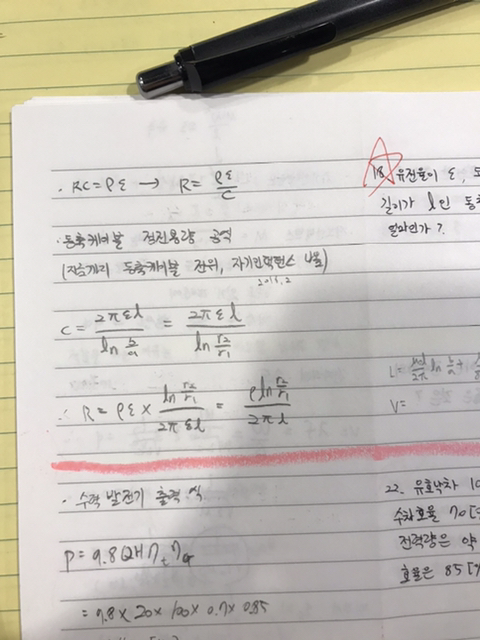 · RC = ρε → R = ρε/C
· 동축케이블 정전용량 공식
(지름길이 동축케이블 전위, 자기인덕턴스 나옴)
2016.2
C = 2πεl / ln b/a = 2πεl / ln r₂/r₁
∴ R = ρε × ln r₂/r₁ / 2πεl = ρ ln r₂/r₁ / 2πl
· 수력 발전기 출력 식
P = 9.8QHηₜη
= 9.8 × 20 × 100 × 0.7 × 0.85
18 유전율이 ε,
길이가 l인 동축
얼마인가?
ln b/a +
V =
22. 유효낙차 10
수차효율 70[%
전력량은 약
효율은 85[%